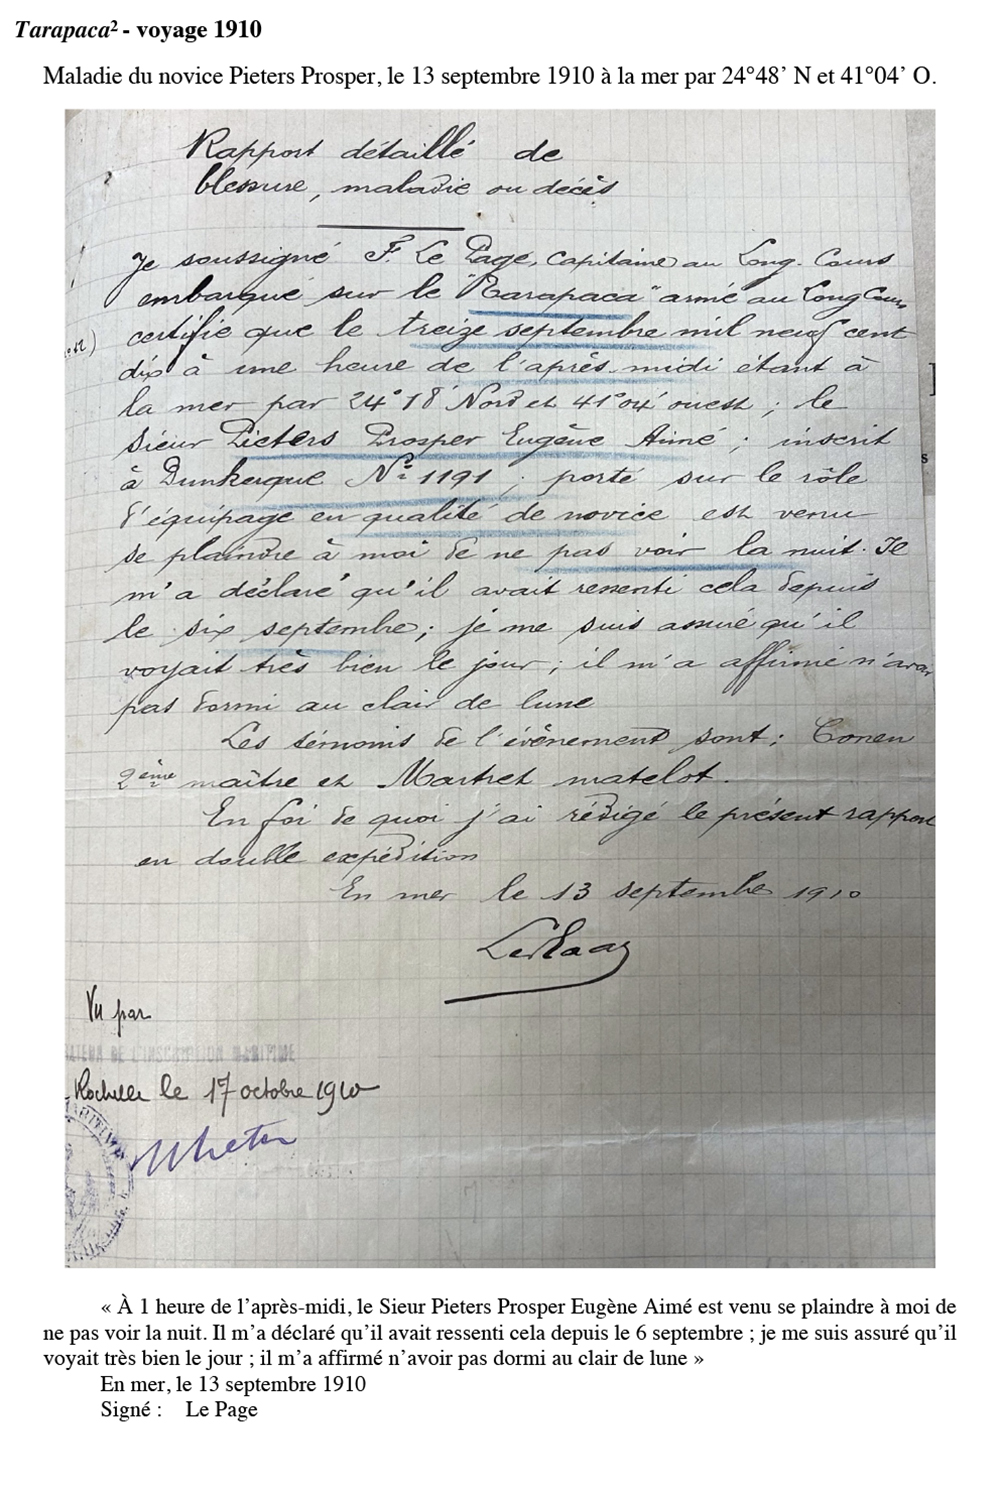 Tarapaca² - voyage 1910
Maladie du novice Pieters Prosper, le 13 septembre 1910 à la mer par 24°48’ N et 41°04’ O.
Rapport détaillé de
blessure, maladie ou décès
Je soussigné F. Le Page, Capitaine au Long-Cours
embarqué sur le "Tarapaca" armé au Long Cours
certifie que le treize septembre mil neuf cent
dix à une heure de l'après-midi étant à
la mer par 24°18' Nord et 41°04' ouest ; le
Sieur Pieters Prosper Eugène Aimé ; inscrit
à Dunkerque N° 1191 ; porté sur le rôle
d'équipage en qualité de novice est venu
se plaindre à moi de ne pas voir la nuit. Il
m'a déclaré qu'il avait ressenti cela depuis
le six septembre ; je me suis assuré qu'il
voyait très bien le jour ; il m'a affirmé n'avoir
pas dormi au clair de lune
Les témoins de l'évènement sont : Conen
2ème maître et Martret matelot.
En foi de quoi j'ai rédigé le présent rapport
en double expédition
En mer le 13 septembre 1910
Le Page
Vu par
DE L'INSCRIPTION MARITIME
Rochelle le 17 octobre 1910
« À 1 heure de l’après-midi, le Sieur Pieters Prosper Eugène Aimé est venu se plaindre à moi de
ne pas voir la nuit. Il m’a déclaré qu’il avait ressenti cela depuis le 6 septembre ; je me suis assuré qu’il
voyait très bien le jour ; il m’a affirmé n’avoir pas dormi au clair de lune »
En mer, le 13 septembre 1910
Signé : Le Page